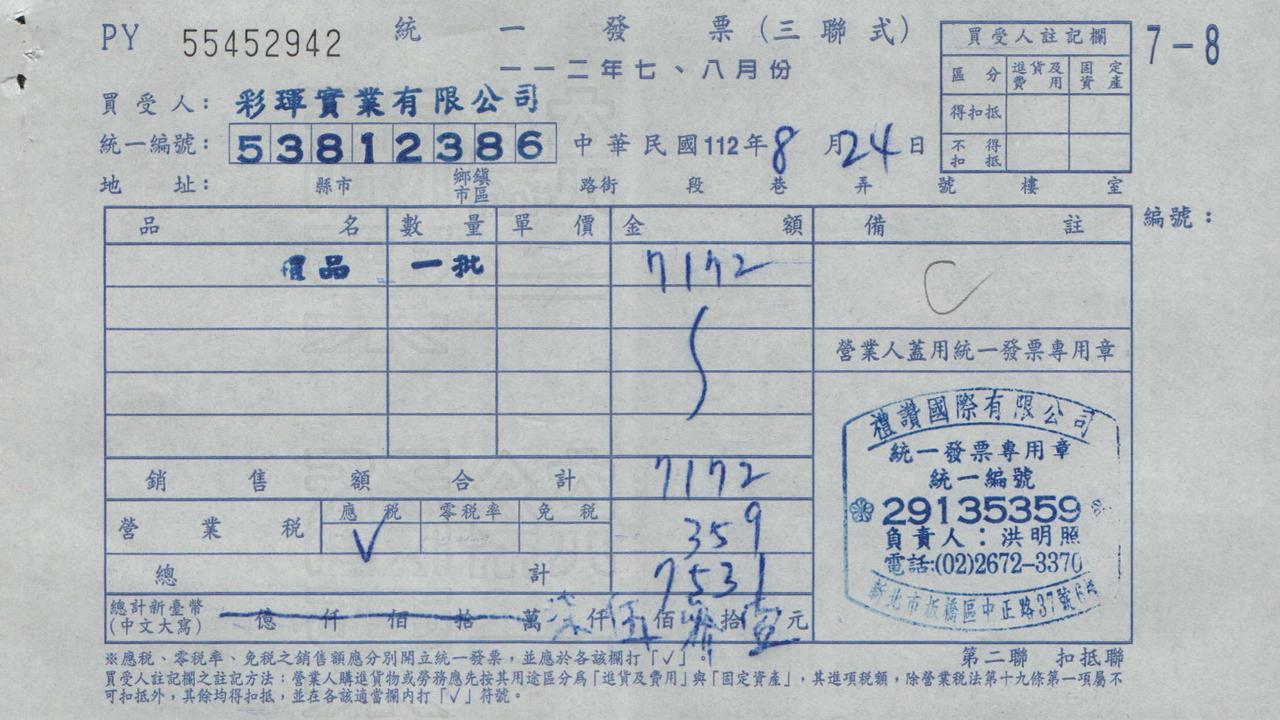 PY 55452942 統一發票(三聯式)
7-8
一一二年七、八月份
買受人註記欄
區分 進貨及費用 固定資產
得扣抵
不得扣抵
買受人: 彩琿實業有限公司
統一編號: 53812386 中華民國112年8月24日
地址: 縣市 鄉鎮市區 路街 段 巷 弄 號 樓 室
品名 數量 單價 金額 備註 編號:
禮品 一批 7172
營業人蓋用統一發票專用章
銷售額合計 7172
營業稅 應稅 零稅率 免稅
V 359
總計 7531
總計新臺幣(中文大寫) 億仟佰拾萬柒仟伍佰拾壹元
禮讚國際有限公司
統一發票專用章
統一編號
29135359
負責人:洪明照
電話:(02)2672-3370
新北市板橋區中正路37號
第二聯 扣抵聯
※應稅、零稅率、免稅之銷售額應分別開立統一發票,並應於各該欄打「V」。
買受人註記欄之註記方法:營業人購進貨物或勞務應先按其用途區分為「進貨及費用」與「固定資產」,其進項稅額,除營業稅法第十九條第一項屬不
可扣抵外,其餘均得扣抵,並在各該適當欄內打「V」符號。